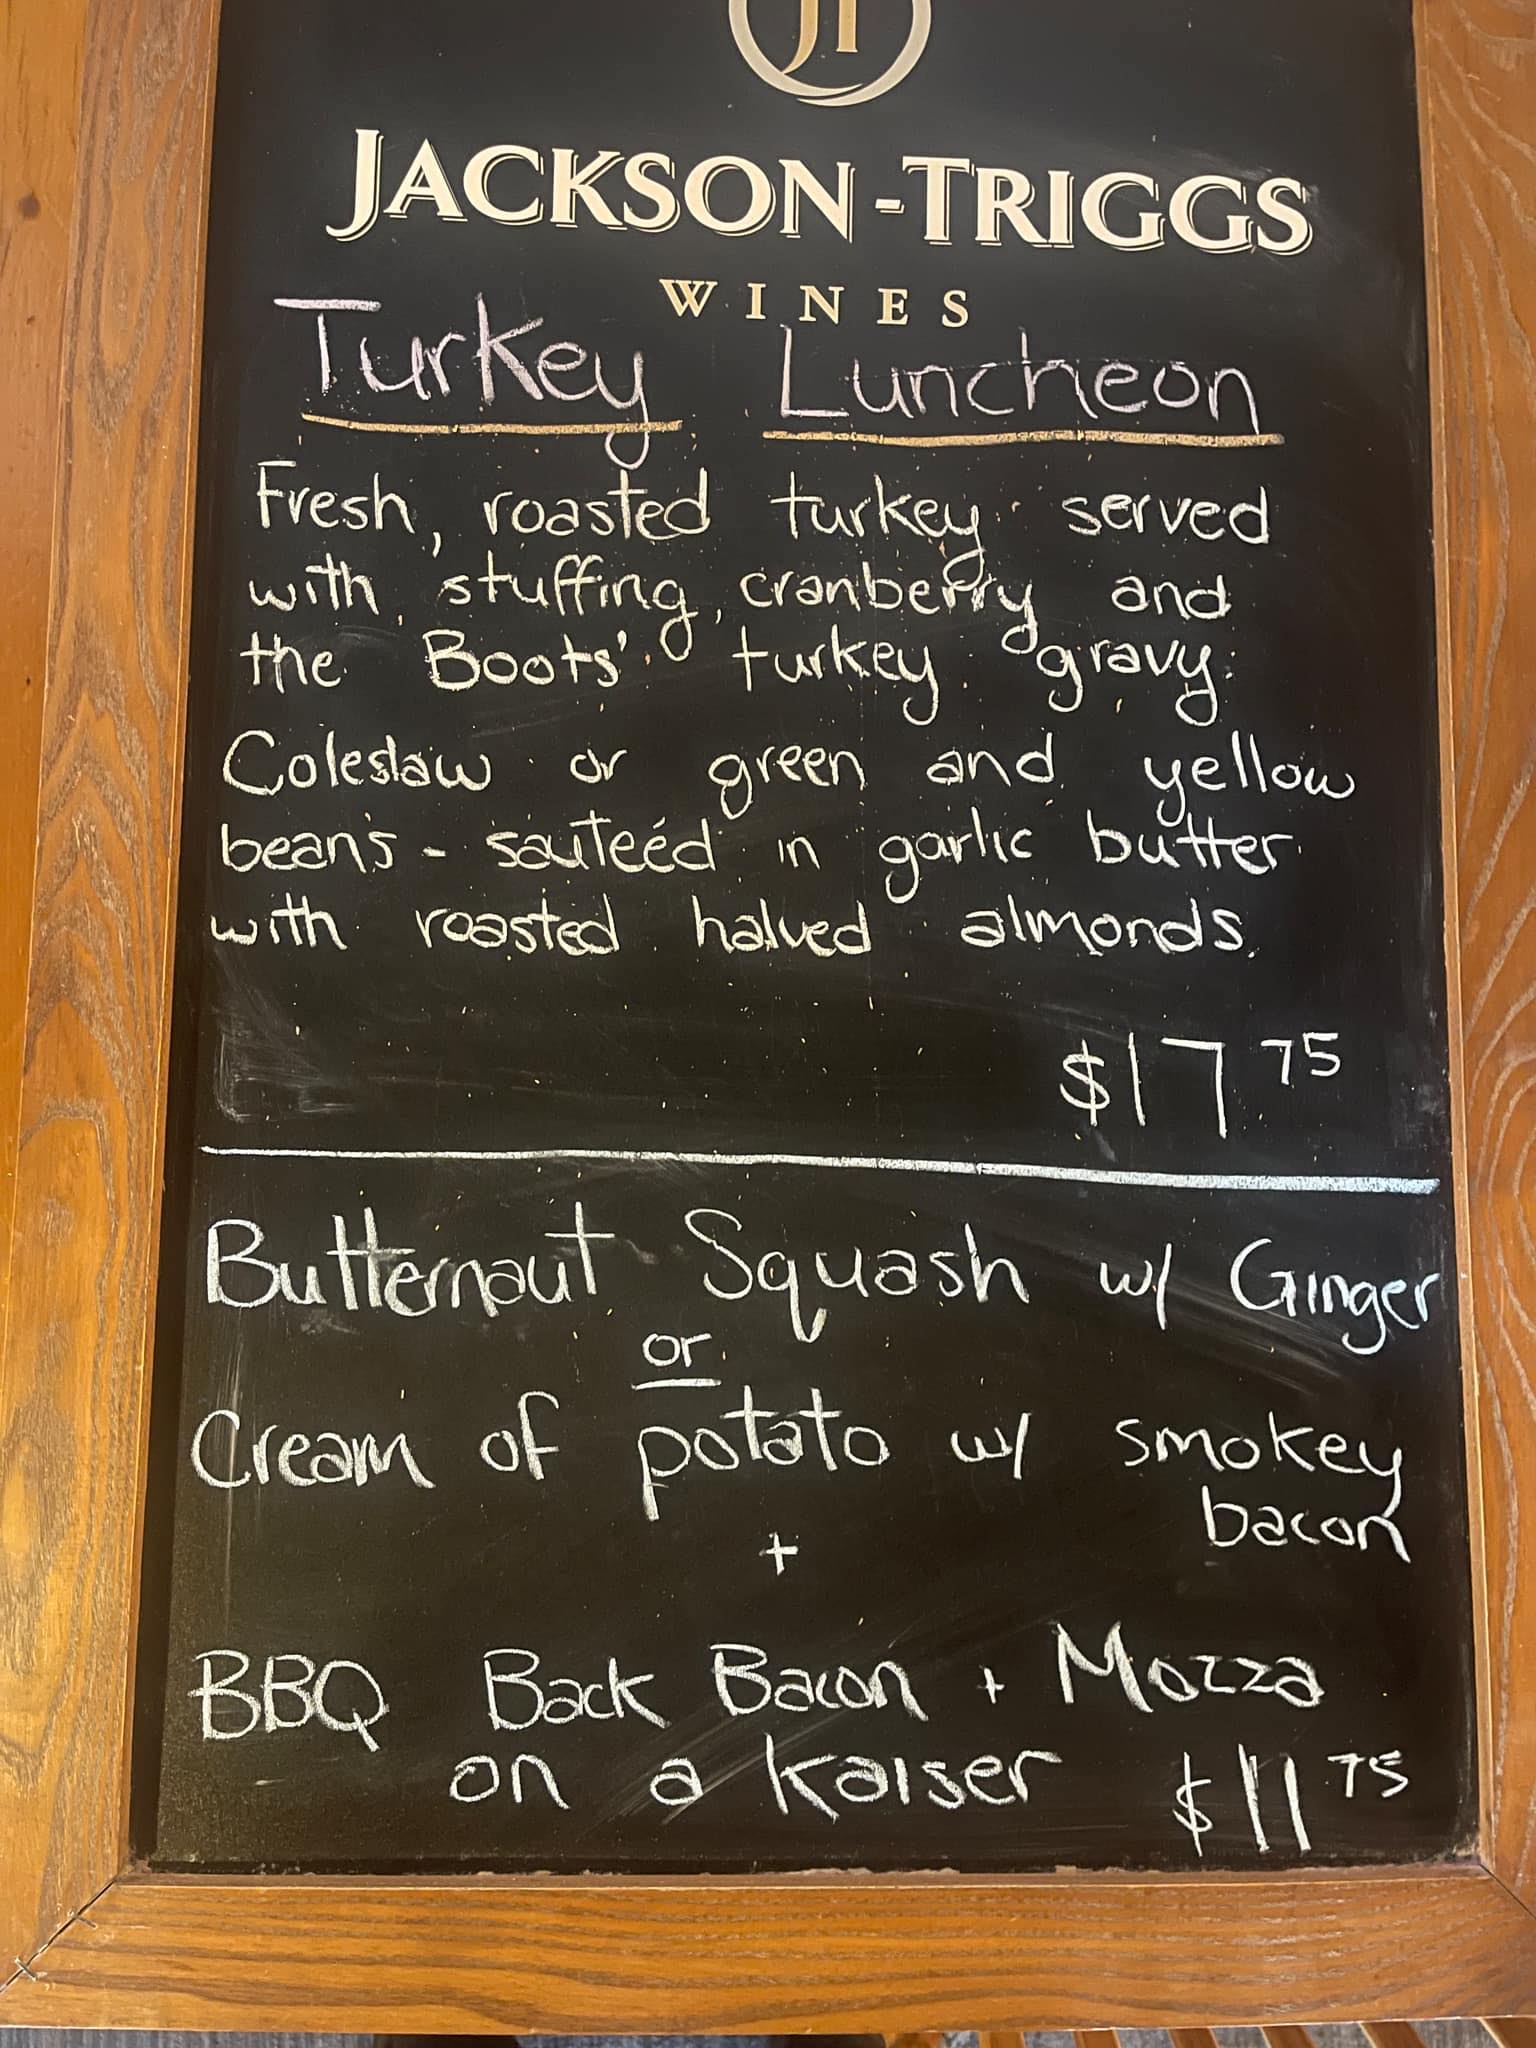 JT
JACKSON-TRIGGS
WINES
Turkey Luncheon
Fresh, roasted turkey served
with, stuffing, cranberry and
the Boots' turkey gravy.
Coleslaw or green and yellow
beans - sauteéd in garlic butter
with roasted halved almonds.
$17 75
Butternaut Squash w/ Ginger
or
Cream of potato w/ smokey
bacon
+
BBQ Back Bacon + Mozza
on a kaiser $11 75